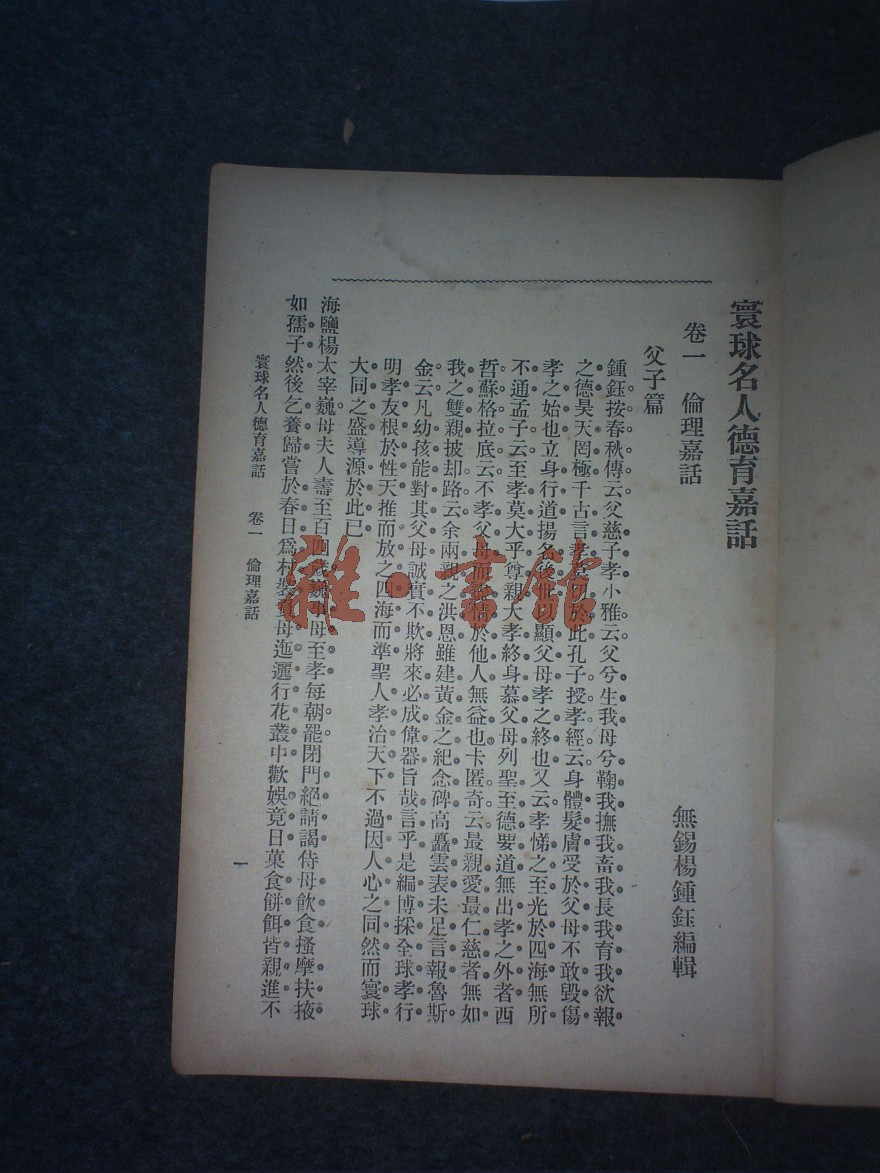 寰球名人德育嘉話
卷一　倫理嘉話
無錫楊鍾鈺編輯
父子篇
鍾鈺按春秋傳云父慈子孝小雅云父兮生我母兮鞠我撫我畜我長我育我欲報
之德昊天罔極千古言孝莫切於此孔子授孝經云身體髮膚受於父母不敢毀傷
孝之始也立身行道揚名後世以顯父母孝之終也又云孝悌之至光於四海無所
不通孟子云至孝莫大乎尊親大孝終身慕父母列聖至德要道無出孝之外者西
哲蘇格拉底云不孝父母而 情於他人無益也卡匿奇云最親愛最仁慈者無如
我之雙親披却路云余兩親之洪恩雖建黃金之紀念碑高矗雲表未足言報魯斯
金云凡幼孩能對其父母誠實不欺將來必成偉器旨哉言乎是編博採全球孝行
明孝友根於性天推而放之四海而準聖人孝治天下不過因人心之同然而寰球
大同之盛導源於此已
海鹽楊太宰巍母夫人壽至百四歲巍事母至孝每朝罷閉門絕請謁侍母飲食搔摩扶掖
如孺子然後乞養歸嘗於春日爲村裝 母迤邐行花叢中歡娛竟日菓食餅餌皆親進不
寰球名人德育嘉話　卷一　倫理嘉話
一
雜·書館